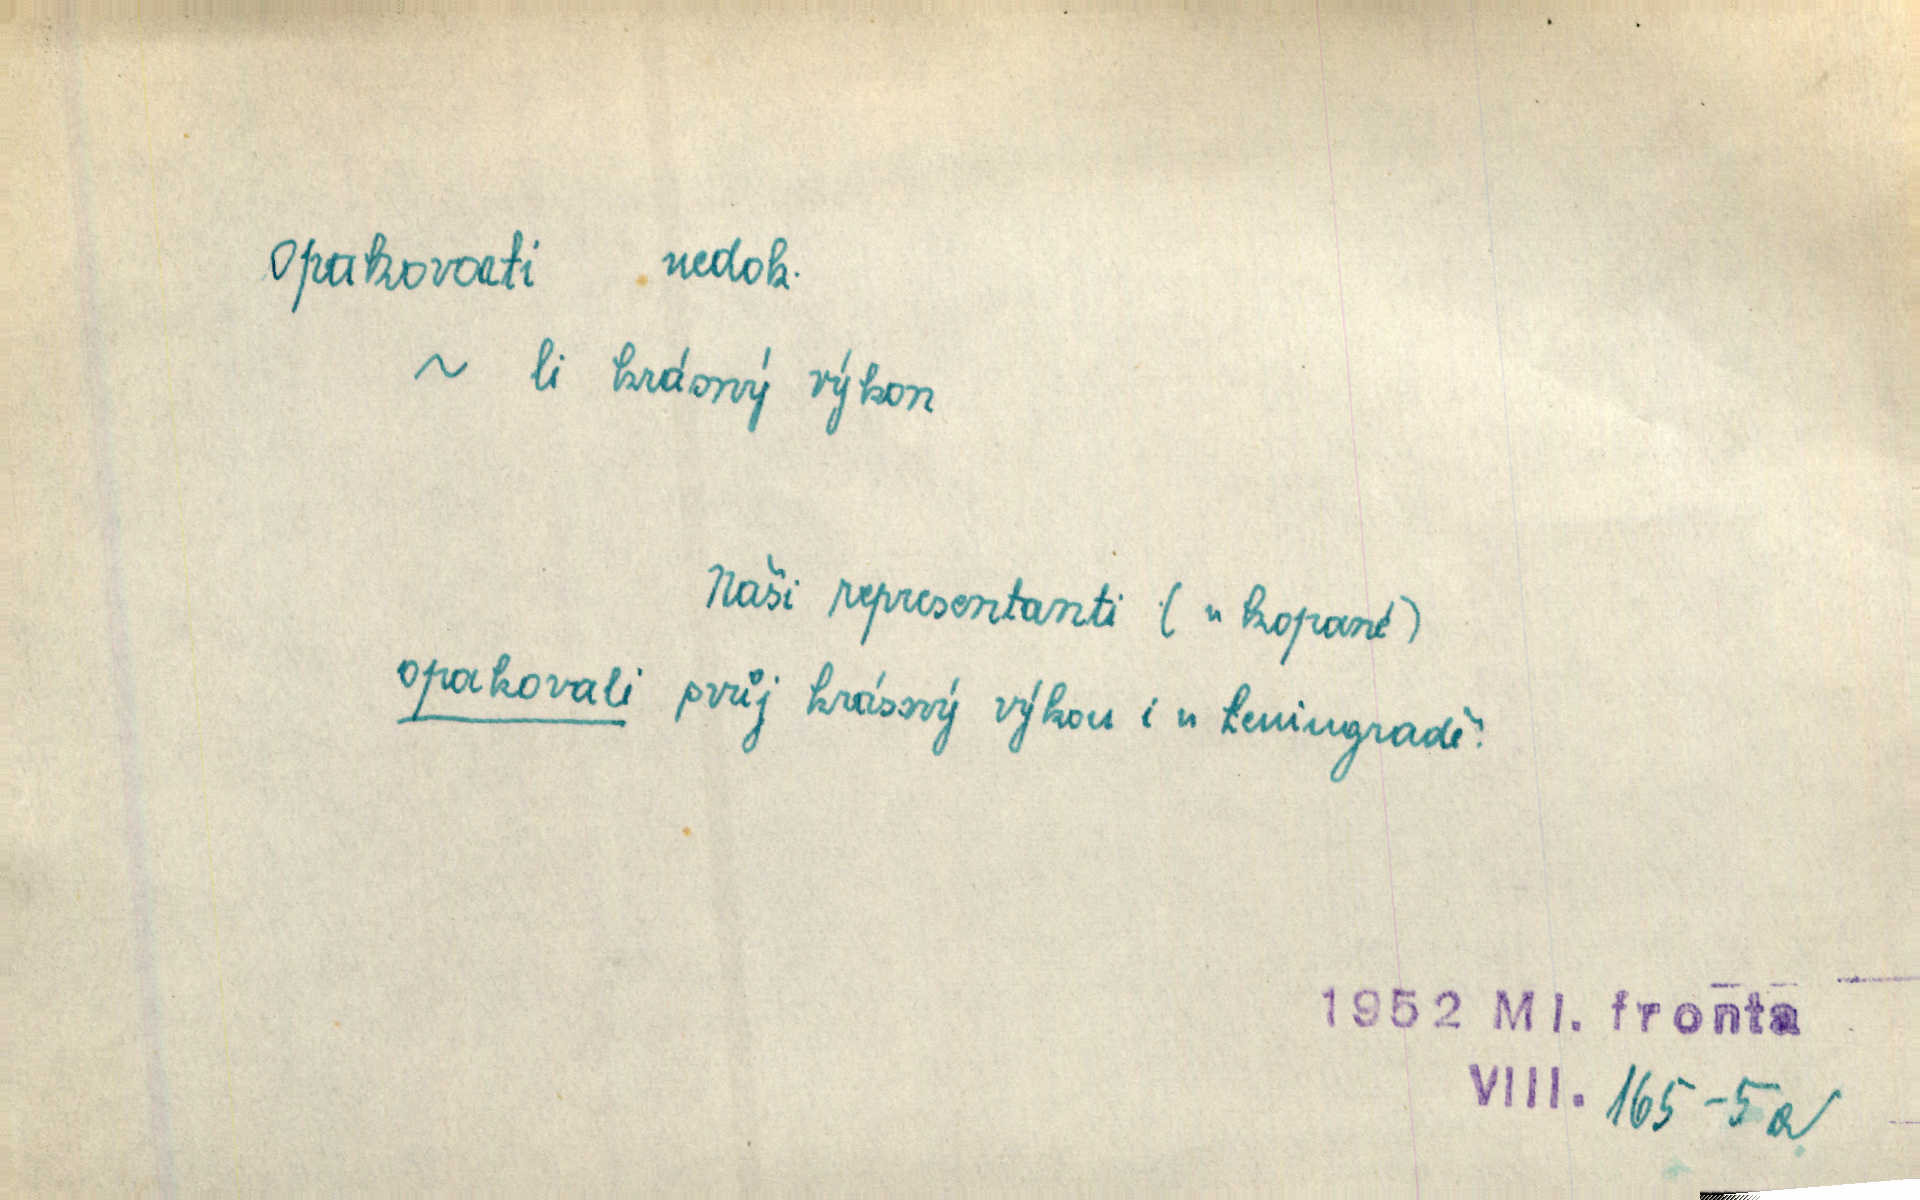 Opakovati nedok.
~ li krásný výkon
Naši representanti (v kopané)
opakovali svůj krásný výkon i v Leningradě.
1952 Ml. fronta
VIII. 165-5a